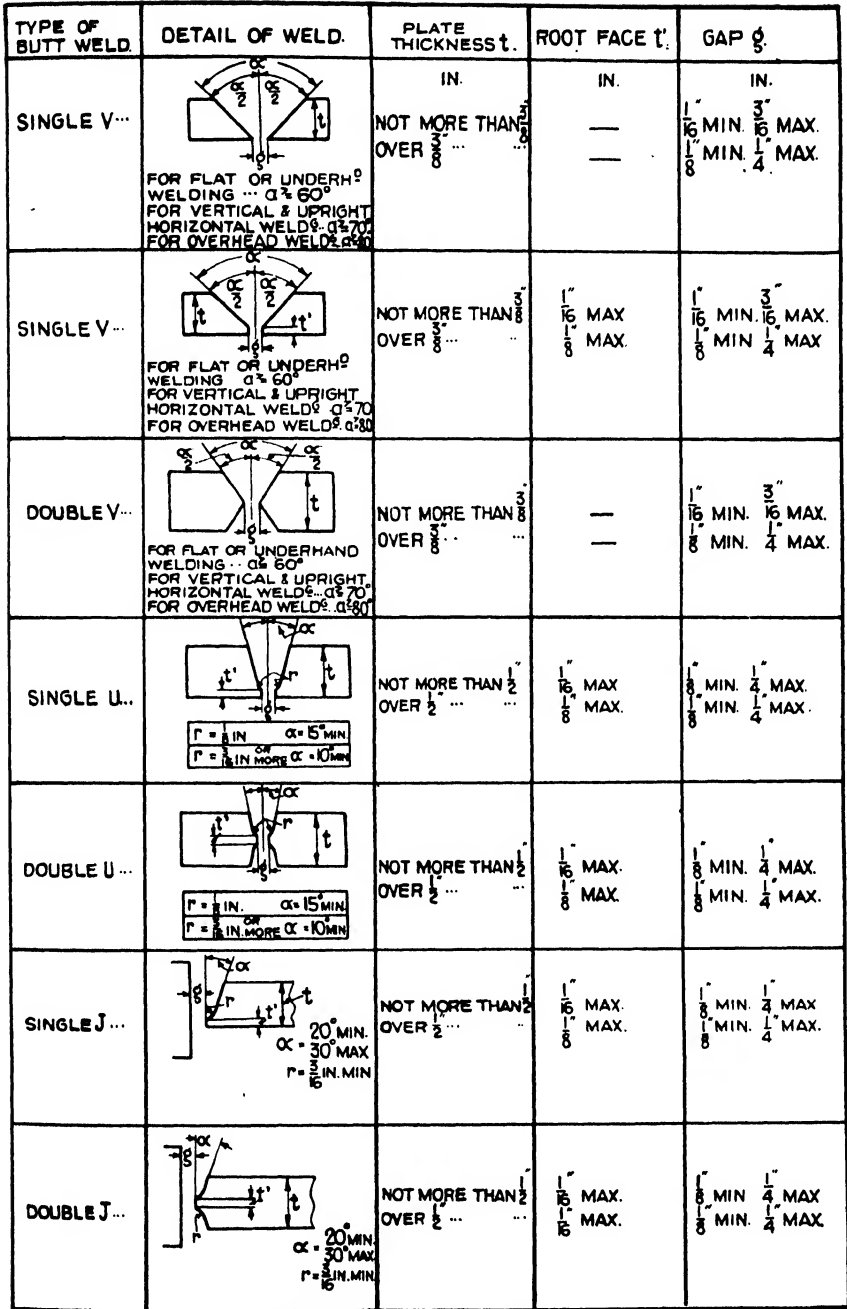 TYPE OF BUTT WELD. DETAIL OF WELD. PLATE THICKNESS t. ROOT FACE t'. GAP g.
IN. IN. IN.
SINGLE V...
α
α/2 α/2
t
g
FOR FLAT OR UNDERHD
WELDING ... α ≥ 60°
FOR VERTICAL & UPRIGHT
HORIZONTAL WELDG.. α ≥ 70°
FOR OVERHEAD WELDG α ≥ 80
NOT MORE THAN 3/8" — 1/16" MIN. 3/16" MAX.
OVER 3/8" ... ... — 1/8" MIN. 1/4" MAX.
SINGLE V...
α
α/2 α/2
t t'
g
FOR FLAT OR UNDERHD
WELDING α ≥ 60°
FOR VERTICAL & UPRIGHT
HORIZONTAL WELDG. α ≥ 70
FOR OVERHEAD WELDG. α ≥ 80
NOT MORE THAN 3/8 1/16" MAX 1/16" MIN. 3/16" MAX.
OVER 3/8" ... .. 1/8" MAX. 1/8" MIN 1/4" MAX
DOUBLE V...
α
α/2 α/2
t
g
FOR FLAT OR UNDERHAND
WELDING .. α ≥ 60°
FOR VERTICAL & UPRIGHT
HORIZONTAL WELDG... α ≥ 70°
FOR OVERHEAD WELDG.. α ≥ 80°
NOT MORE THAN 3/8 — 1/16" MIN. 3/16" MAX.
OVER 3/8" .. ... — 1/8" MIN. 1/4" MAX.
SINGLE U...
α
t' r t
g
r = 1/8 IN α = 15° MIN.
OR
r = 3/16 IN MORE α = 10° MIN
NOT MORE THAN 1/2" 1/16" MAX 1/8" MIN. 1/4" MAX.
OVER 1/2" ... ... 1/8" MAX. 1/8" MIN. 1/4" MAX.
DOUBLE U...
α
t' r t
g
r = 1/8 IN. α = 15° MIN.
OR
r = 3/16 IN. MORE α = 10° MIN
NOT MORE THAN 1/2" 1/16" MAX. 1/8" MIN. 1/4" MAX.
OVER 1/2" ... .. 1/8" MAX. 1/8" MIN. 1/4" MAX.
SINGLE J...
α
g r t' t
α = 20° MIN.
30° MAX
r = 3/16 IN. MIN
NOT MORE THAN 1/2" 1/16" MAX. 1/8" MIN. 1/4" MAX
OVER 1/2" ... .. 1/8" MAX. 1/8" MIN. 1/4" MAX.
DOUBLE J...
α
g t' t
r
α = 20° MIN.
30° MAX
r = 3/16 IN. MIN
NOT MORE THAN 1/2" 1/16" MAX. 1/8" MIN 1/4" MAX
OVER 1/2" ... .. 1/16" MAX. 1/8" MIN. 1/4" MAX.